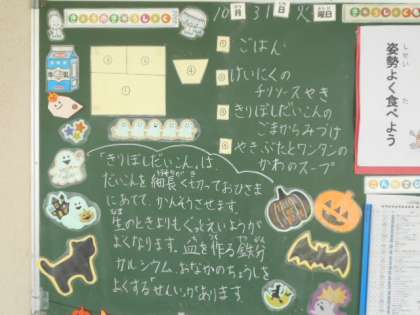 きょうのきゅうしょく
10月31日火曜日
牛乳
① ごはん
② けいにくの
チリソースやき
③ きりぼしだいこんの
ごまからみづけ
④ やきぶたとワンタンの
かわのスープ
③
①
②
④
「きりぼしだいこん」は、
だいこんを細長く切っておひさま
にあてて、かんそうさせます。
生のときよりもぐっとえいようが
よくなります。血を作る鉄分
カルシウム、おなかのちょうしを
よくする「せんい」があります。
しせい
た
姿勢よく食べよう